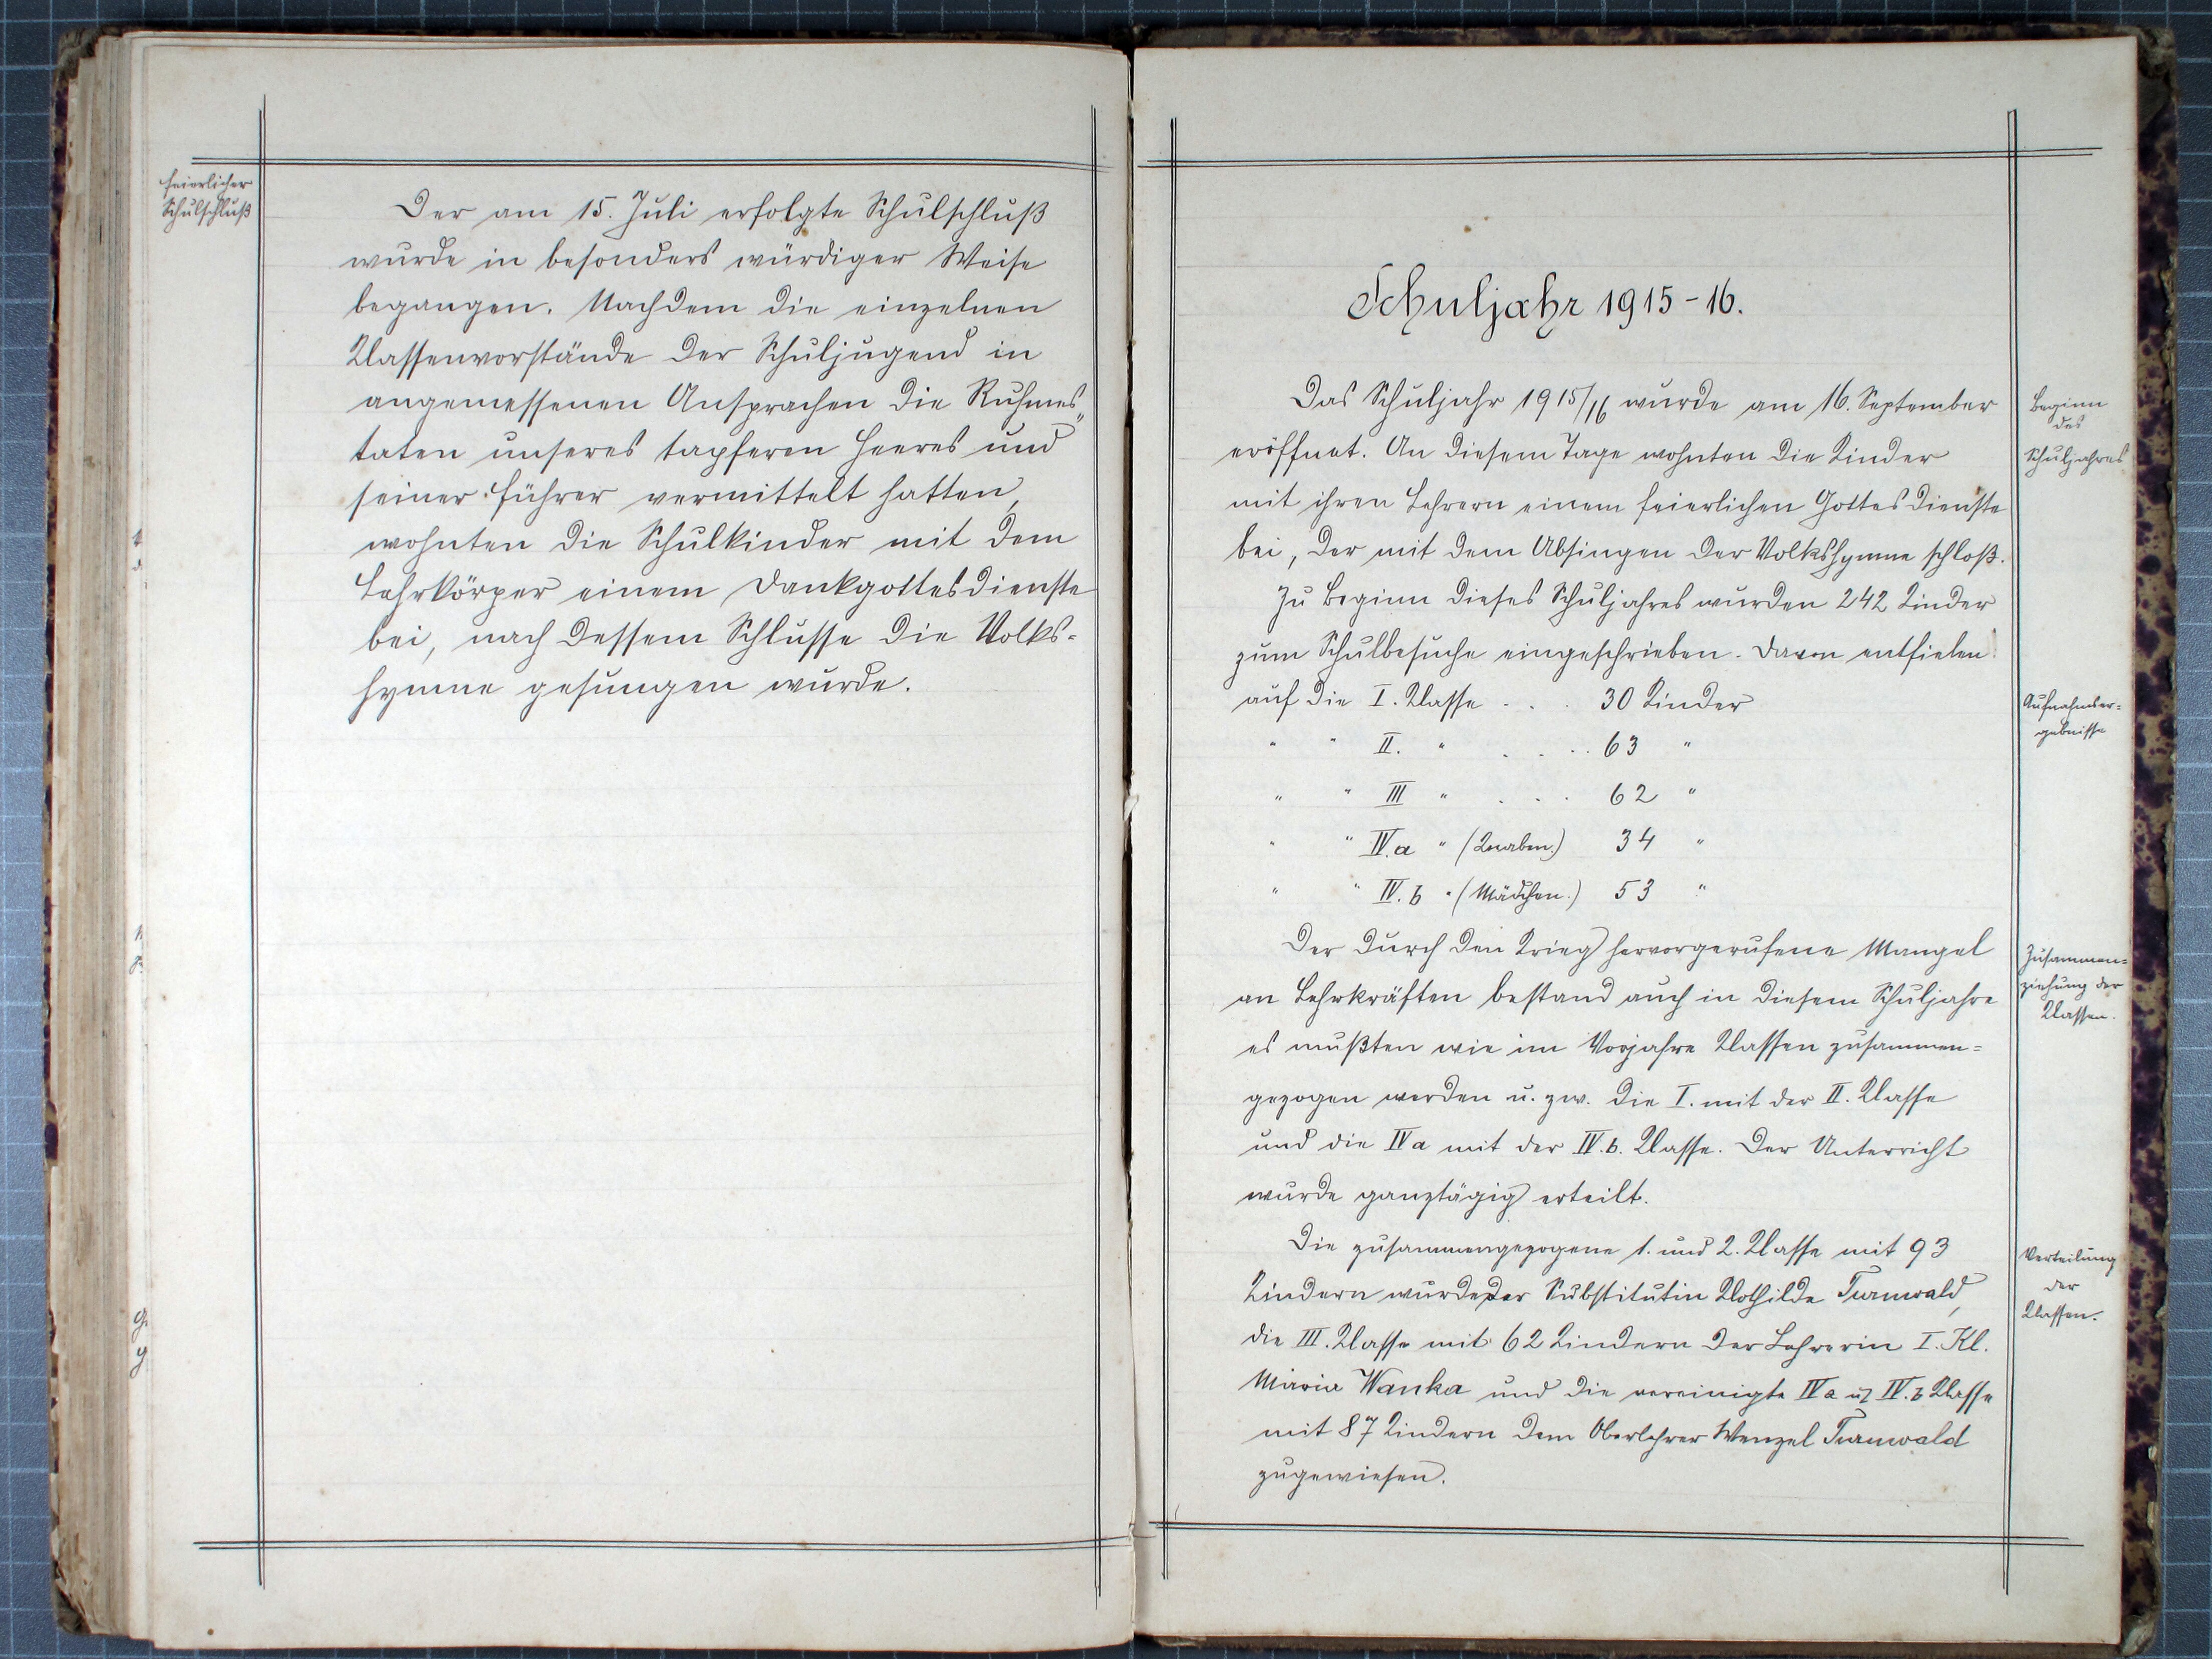 feierlicher
Schulschluß
Der am 15. Juli erfolgte Schulschluß
wurde in besonders würdiger Weise
begangen. Nachdem die einzelnen
Klassenvorstände der Schuljugend in
angemessenen Ansprachen die Ruhmes„
taten unseres tapferen Heeres und
seiner Führer vermittelt hatten,
wohnten die Schulkinder mit dem
Lehrkörper einem Dankgottesdienste
bei, nach dessem Schlusse die Volks=
hymne gesungen wurde.
Schuljahr 1915-16.
Das Schuljahr 1915/16 wurde am 16. September
eröffnet. An diesem Tage wohnten die Kinder
mit ihren Lehrern einem feierlichen Gottesdienste
bei, der mit dem Absingen der Volkshymne schloß.
Zu Beginn dieses Schuljahres wurden 242 Kinder
zum Schulbesuche eingeschrieben. Davon entfielen
auf die I. Klasse . . . 30 Kinder
" " II. " . . . 63 "
" " III " . . . 62 "
" " IV.a " (Knaben.) 34 "
" " IV.b " (Mädchen.) 53 "
Der durch den Krieg hervorgerufene Mangel
an Lehrkräften bestand auch in diesem Schuljahre
es mußten wie im Vorjahre Klassen zusammen=
gezogen werden u. zw. die I. mit der II. Klasse
und die IVa mit der IV.b. Klasse. Der Unterricht
wurde ganztägig erteilt.
Die zusammengezogene 1. und 2. Klasse mit 93
Kindern wurde der Substitutin Klothilde Turnwald,
die III. Klasse mit 62 Kindern der Lehrerin I. Kl.
Maria Wanka und die vereinigte IVa u. IV.b Klasse
mit 87 Kindern dem Oberlehrer Wenzel Turnwald
zugewiesen.
Beginn
des
Schuljahres
Aufnahmser=
gebnisse
Zusammen=
ziehung der
Klassen.
Verteilung
der
Klassen.